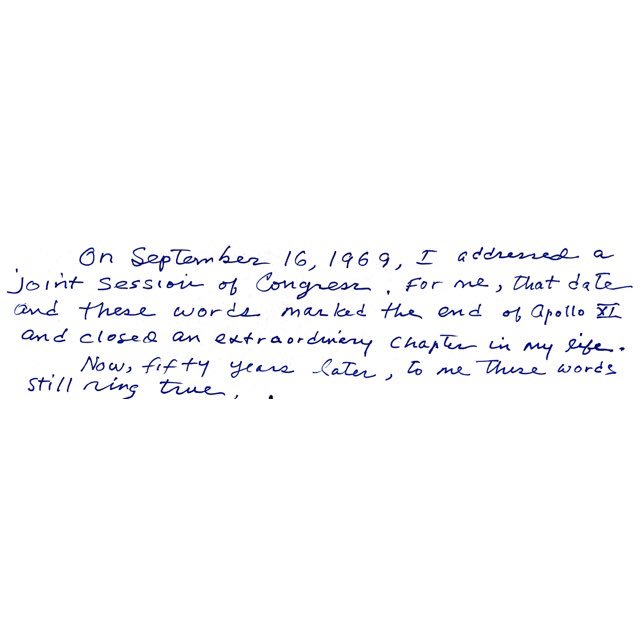 On September 16, 1969, I addressed a
joint session of Congress. For me, that date
and these words marked the end of Apollo XI
and closed an extraordinary chapter in my life.
Now, fifty years later, to me these words
still ring true.